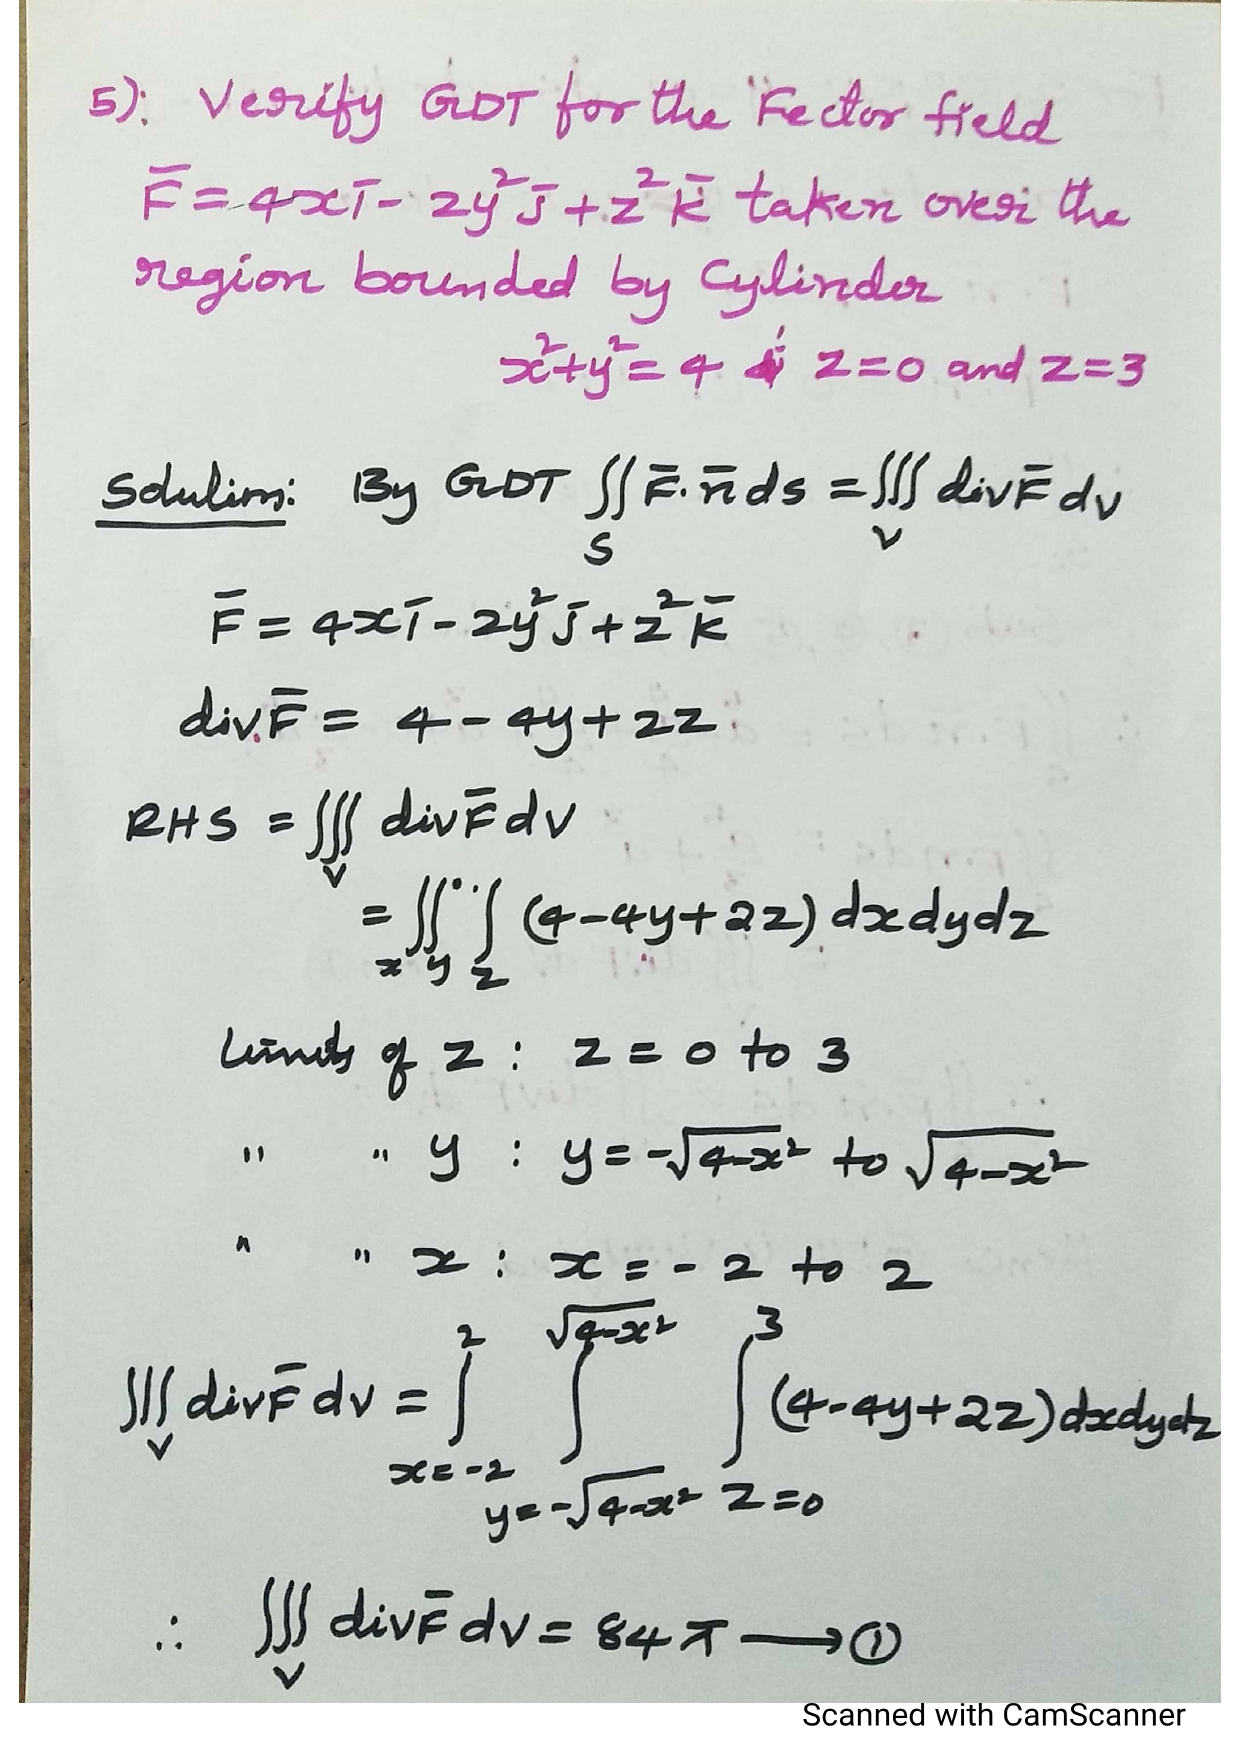 5): Verify GDT for the Fector field
F̄ = 4xī - 2y²j̄ + z²k̄ taken over the
region bounded by Cylinder
x²+y²=4 z=0 and z=3
Solution: By GDT ∬_S F̄.n̄ ds = ∭_V divF̄ dv
F̄ = 4xī - 2y²j̄ + z²k̄
div.F̄ = 4 - 4y + 2z
RHS = ∭_V divF̄ dv
= ∬∫_{x y z} (4-4y+2z) dxdydz
Limits of z : z = 0 to 3
" " y : y = -√(4-x²) to √(4-x²)
" " x : x = -2 to 2
∭_V divF̄ dv = ∫_{x=-2}^{2} ∫_{y=-√(4-x²)}^{√(4-x²)} ∫_{z=0}^{3} (4-4y+2z) dxdydz
∴ ∭_V divF̄ dv = 84π → ①
Scanned with CamScanner